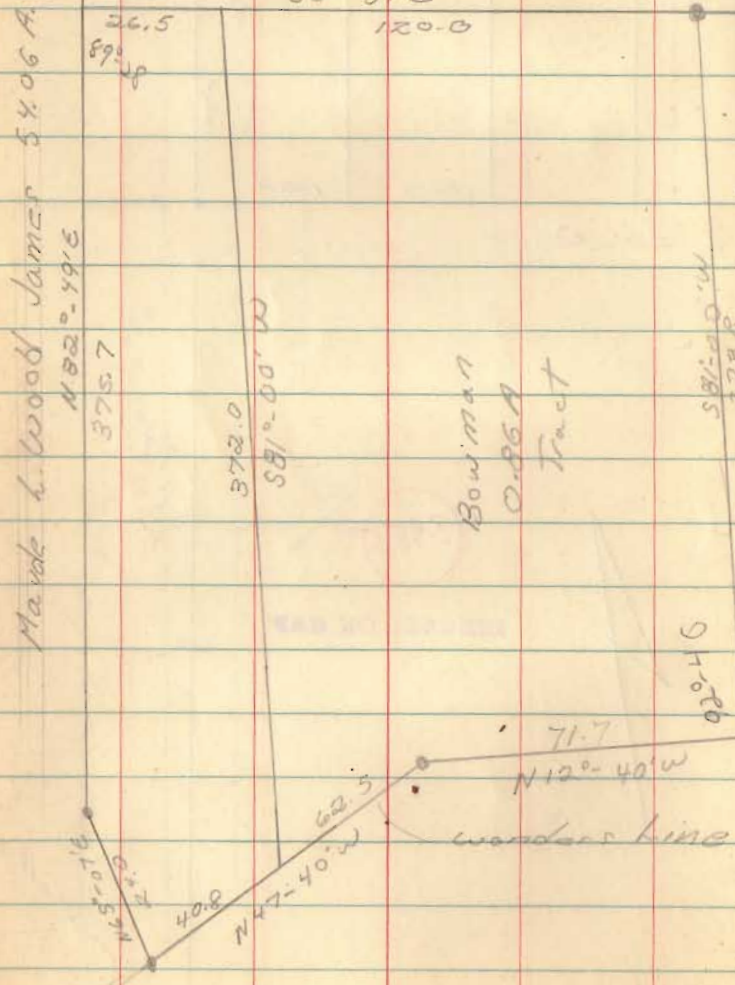 26.5
120.0
89°-
Maude L. Wood James 54.06 A.
N.82°-49'E
375.7
372.0
S81°-00'W
Bowman
0.86 A
Tract
S81°-00'W
92°-46
71.7
N12°-40'W
62.5
wonders Line
40.8
N47°-40'W
24.0